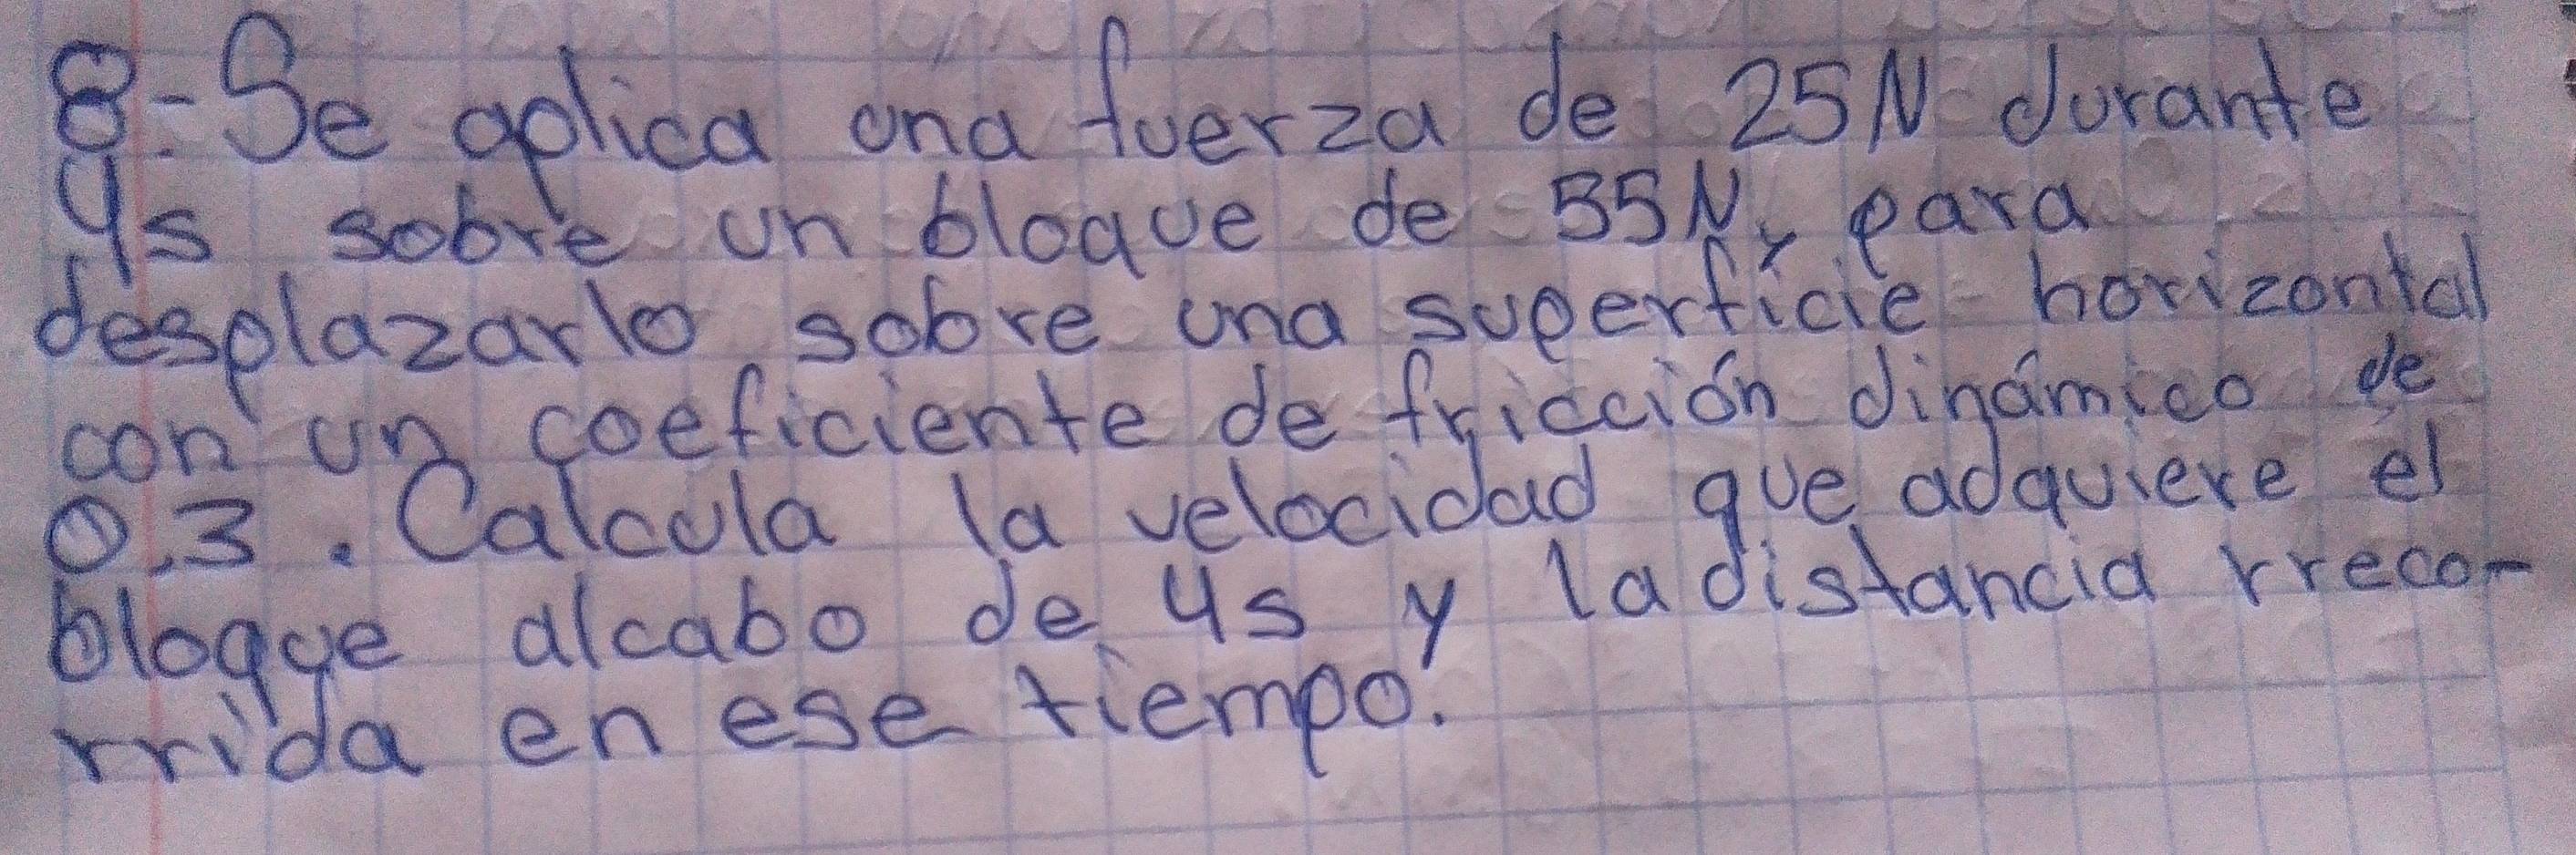 8.- Se aplica una fuerza de 25N durante
4s sobre un bloque de 55N, para
desplazarlo sobre una superficie horizontal
con un coeficiente de fricción dinámico de
0.3. Calcula la velocidad que adquiere el
bloque alcabo de 4s y la distancia rreco-
rrida en ese tiempo.